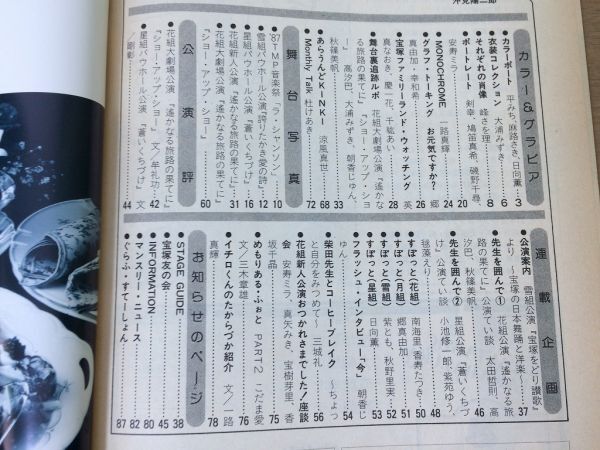 沖見陽二郎
カラー&グラビア
カラー・ポート 平みち、麻路さき、日向薫… 3
衣装コレクション 大浦みずき… 6
それぞれの肖像 峰さを理… 8
ポートレート 剣幸、鳩笛真希、磯野千尋、
安寿ミラ 20
MONOCHROME 一路真輝 24
グラフ・トーキング お元気ですか? 郷
真由加・幸和希… 26
宝塚ファミリーランド・ウォッチング 英
真なおき、慶一花、千紘あい… 28
舞台裏追跡ルポ 花組大劇場公演『遙かな
る旅路の果てに』『ショー・アップ・ショ
ー』 高汐巴、大浦みずき、朝香じゅん、
秋篠美帆 33
あらうんどKINKI 涼風真世… 68
Monthly Talk 杜けあき… 72
舞台写真
'87TMP音楽祭「ラ・シャンソン」… 10
雪組バウホール公演『誇りたかき愛の詩』… 12
星組バウホール公演『蒼いくちづけ』… 16
花組新人公演『遙かなる旅路の果てに』… 31
花組大劇場公演『遙かなる旅路の果てに』
『ショー・アップ・ショー』 60
公演評
花組大劇場公演『遙かなる旅路の果てに』
『ショー・アップ・ショー』 文/牟礼功… 42
星組バウホール公演『蒼いくちづけ』 文
/剛彰… 44
連載企画
公演案内 雪組公演『宝塚をどり讃歌』
より 〜宝塚の日本舞踊と洋楽〜 37
先生を囲んで① 花組公演『遙かなる旅
路の果てに』公演でい談 太田哲則、高
汐巴、秋篠美帆 46
先生を囲んで② 星組公演『蒼いくちづ
け』公演てい談 小池修一郎、紫苑ゆう、
毬藻えり 48
すぽっと〔花組〕 南海里・香寿たつき… 50
すぽっと〔月組〕 郷真由加… 51
すぽっと〔雪組〕 紫とも、秋野里実… 52
すぽっと〔星組〕 日向薫… 53
フラッシュ・インタビュー「今」 朝香じ
ゅん 54
柴田先生とコーヒーブレイク 〜ちょっ
と自分をみつめて〜 三城礼 56
花組新人公演おつかれさまでした!座談
会 安寿ミラ、真矢みき、宝樹芽里、香
坂千晶 75
めもりある・ふぉと PART2 こだま愛
文/三木章雄 76
イチロくんのたからづか紹介 文/一路
真輝 78
お知らせのページ
STAGE GUIDE 38
宝塚友の会 45
INFORMATION 80
マンスリー・ニュース 82
ぐらふ・すてーしょん 87